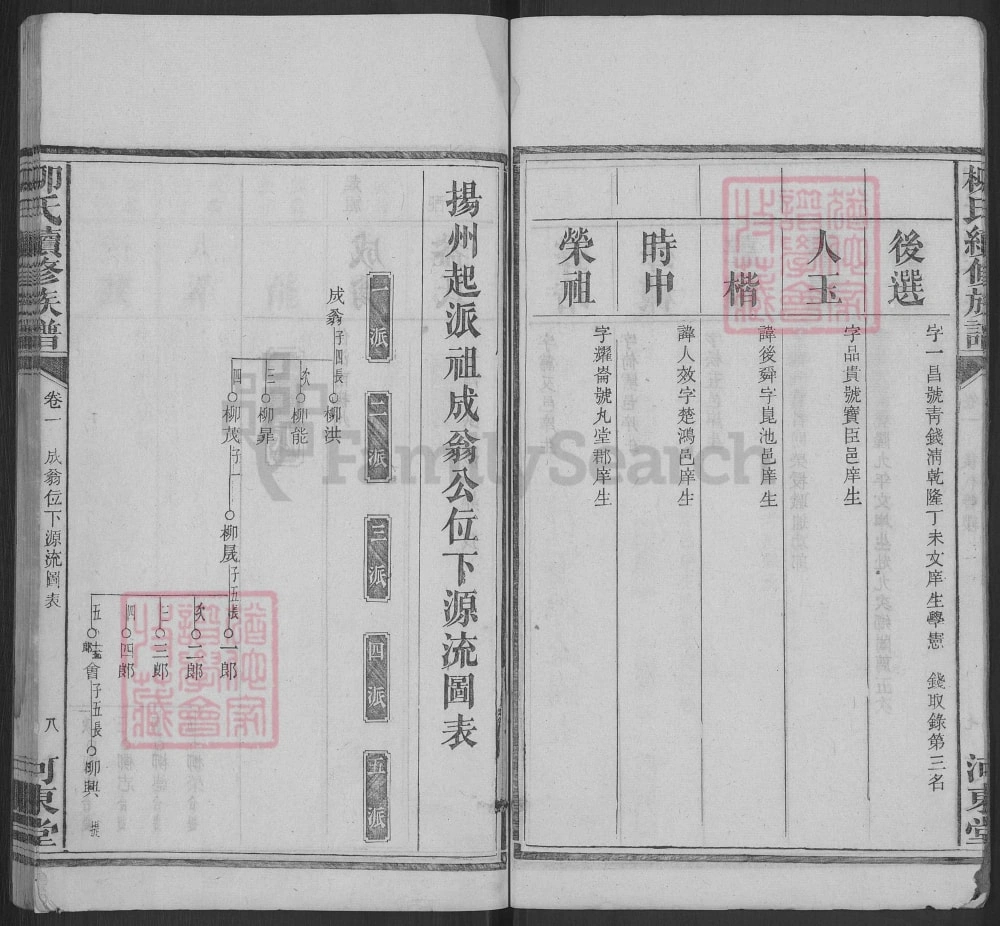 柳氏續修族譜
河東堂
後選
字一昌號靑錢淸乾隆丁未文庠生學憲 錢取錄第三名
人玉
字品貴號寶臣邑庠生
楷
諱後舜字崑池邑庠生
時中
諱人效字楚鴻邑庠生
榮祖
字耀崙號九堂郡庠生
揚州起派祖成翁公位下源流圖表
一派
二派
三派
四派
五派
成翁 子四長 柳洪
次 柳能
三 柳晁
四 柳茂 子一 柳晟 子五長 一郎
次 二郎
三 三郎
四 四郎
五 會 子五長 柳興 提
柳氏續修族譜
卷一 成翁位下源流圖表
八
河東堂
FamilySearch